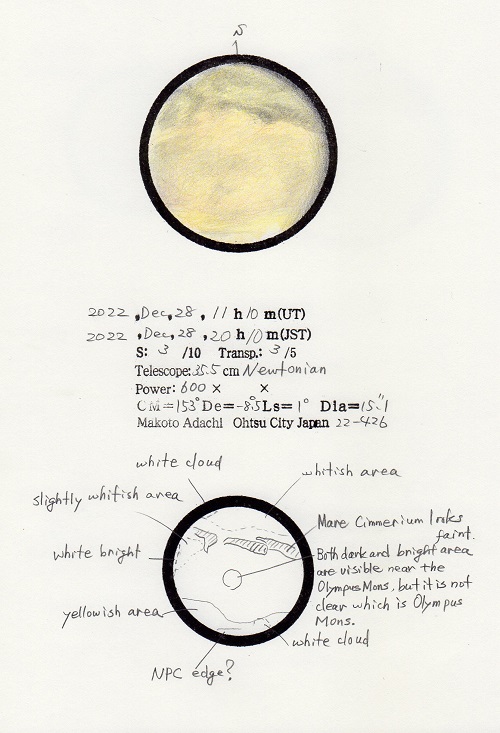 S
2022 , Dec, 28 , 11 h 10 m(UT)
2022 , Dec, 28 , 20 h 10 m(JST)
S: 3 /10 Transp.: 3 /5
Telescope: 35.5 cm Newtonian
Power: 600 × ×
CM=153° De=-8.5° Ls= 1° Dia=15."1
Makoto Adachi Ohtsu City Japan 22-426
white cloud
whitish area
slightly whitish area
Mare Cimmerium looks
faint.
white bright
Both dark and bright area
are visible near the
Olympus Mons, but it is not
clear which is Olympus
Mons.
yellowish area
white cloud
NPC edge?